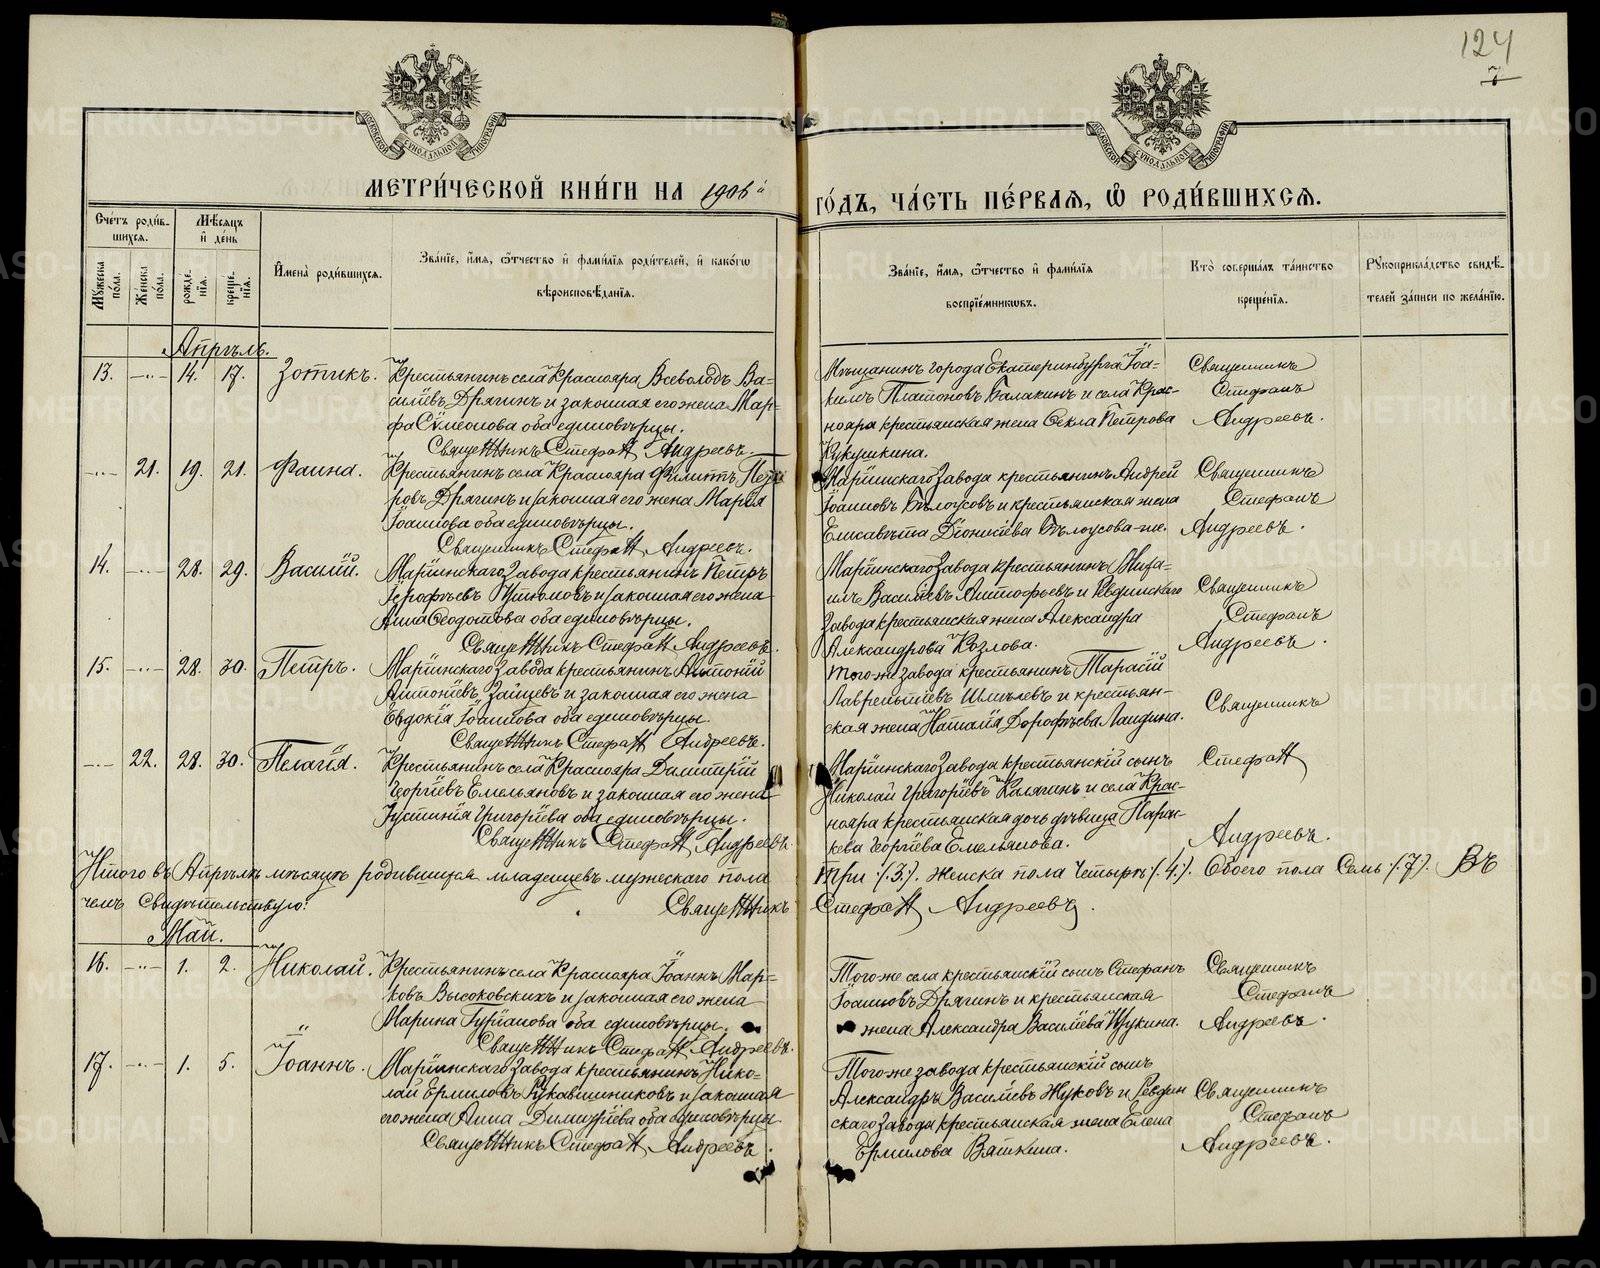 124
МОСКОВСКОЙ СѴНОДАЛЬНОЙ ТИПОГРАФІИ
МОСКОВСКОЙ СѴНОДАЛЬНОЙ ТИПОГРАФІИ
МЕТРИ́ЧЕСКОЙ КНИ́ГИ НА 1906й
ГО́ДЪ, ЧА́СТЬ ПЕ́РВАѦ, Ѡ҆ РОДИ́ВШИХСѦ.
Сче́тъ роди́в-
шихсѧ.
Мѣ́сѧцъ
и҆ де́нь
Мꙋ́жеска по́ла.
Же́нска по́ла.
рожде́-нїѧ.
креще́-нїѧ.
И҆мена̀ роди́вшихсѧ.
Зва́нїе, и҆́мѧ, ѻ҆́тчество и҆ фами́лїѧ роди́телей, и҆ како́гѡ
вѣроисповѣ́данїѧ.
Зва́нїе, и҆́мѧ, ѻ҆́тчество и҆ фами́лїѧ
воспрїе́мникѡвъ.
Кто̀ соверша́лъ та́инство
креще́нїѧ.
Рꙋкоприкла́дство свидѣ́-
телей за́писи по жела́нїю.
Апрѣль.
13. —"— 14. 17. Зотикъ. Крестьянинъ села Краснояра Всеволодъ Ва-
сильевъ Дрягинъ и законная его жена Мар-
фа Сѵмеонова оба единовѣрцы.
Священникъ Стефанъ Андреевъ.
Мѣщанинъ города Екатеринбурга Іоа-
кимъ Платоновъ Балакинъ и села Крас-
нояра крестьянская жена Ѳекла Петрова
Кукушкина.
Священникъ
Стефанъ
Андреевъ.
—"— 21. 19. 21. Фаина. Крестьянинъ села Краснояра Филиппъ Пет-
ровъ Дрягинъ и законная его жена Марія
Іоаннова оба единовѣрцы.
Священникъ Стефанъ Андреевъ.
Маріинскаго Завода крестьянинъ Андрей
Іоанновъ Бѣлоусовъ и крестьянская жена
Елисавѣта Діонисіева Бѣлоусова-же.
Священникъ
Стефанъ
Андреевъ.
14. —"— 28. 29. Василій. Маріинскаго Завода крестьянинъ Петръ
Іерофѣевъ и законная его жена
Анна Ѳеодотова оба единовѣрцы.
Священникъ Стефанъ Андреевъ.
Маріинскаго Завода крестьянинъ Миха-
илъ Василіевъ Антофьевъ и Ревдинскаго
Завода крестьянская жена Александра
Александрова Козлова.
Священникъ
Стефанъ
Андреевъ.
15. —"— 28. 30. Петръ. Маріинскаго Завода крестьянинъ Антоній
Антоніевъ Зайцевъ и законная его жена
Евдокія Іоаннова оба единовѣрцы.
Священникъ Стефанъ Андреевъ.
Того же завода крестьянинъ Тарасій
Лаврентіевъ Шмѣлевъ и крестьян-
ская жена Наталія Дорофѣева Ландина.
Священникъ
—"— 22. 28. 30. Пелагія. Крестьянинъ села Краснояра Димитрій
Георгіевъ Емельяновъ и законная его жена
Іустинія Григоріева оба единовѣрцы.
Священникъ Стефанъ Андреевъ.
Маріинскаго Завода крестьянскій сынъ
Николай Григоріевъ Калягинъ и села Крас-
нояра крестьянская дочь дѣвица Парас-
кева Георгіева Емельянова.
Стефанъ
Андреевъ.
Итого въ Апрѣлѣ мѣсяцѣ родившихся младенцевъ мужескаго пола
Три ./.3./. женска пола Четыре /.4./. Обоего пола Семь /.7./. Въ
чемъ свидѣтельствую: Священникъ
Стефанъ Андреевъ.
Май.
16. —"— 1. 2. Николай. Крестьянинъ села Краснояра Іоаннъ Мар-
ковъ Высоковскихъ и законная его жена
Марина Гуріанова оба единовѣрцы.
Священникъ Стефанъ Андреевъ.
Того же села крестьянскій сынъ Стефанъ
Іоанновъ Дрягинъ и крестьянская
жена Александра Василіева Щукина.
Священникъ
Стефанъ
Андреевъ.
17. —"— 1. 5. Іоаннъ. Маріинскаго Завода крестьянинъ Нико-
лай Ермиловъ Рукавишниковъ и законная
его жена Анна Димитріева оба единовѣрцы
Священникъ Стефанъ Андреевъ.
Того же завода крестьянскій сынъ
Александръ Василіевъ Жуковъ и Ревдин
скаго Завода крестьянская жена Елена
Ермилова Вяткина.
Священникъ
Стефанъ
Андреевъ.
METRIKI.GASO-URAL.RU